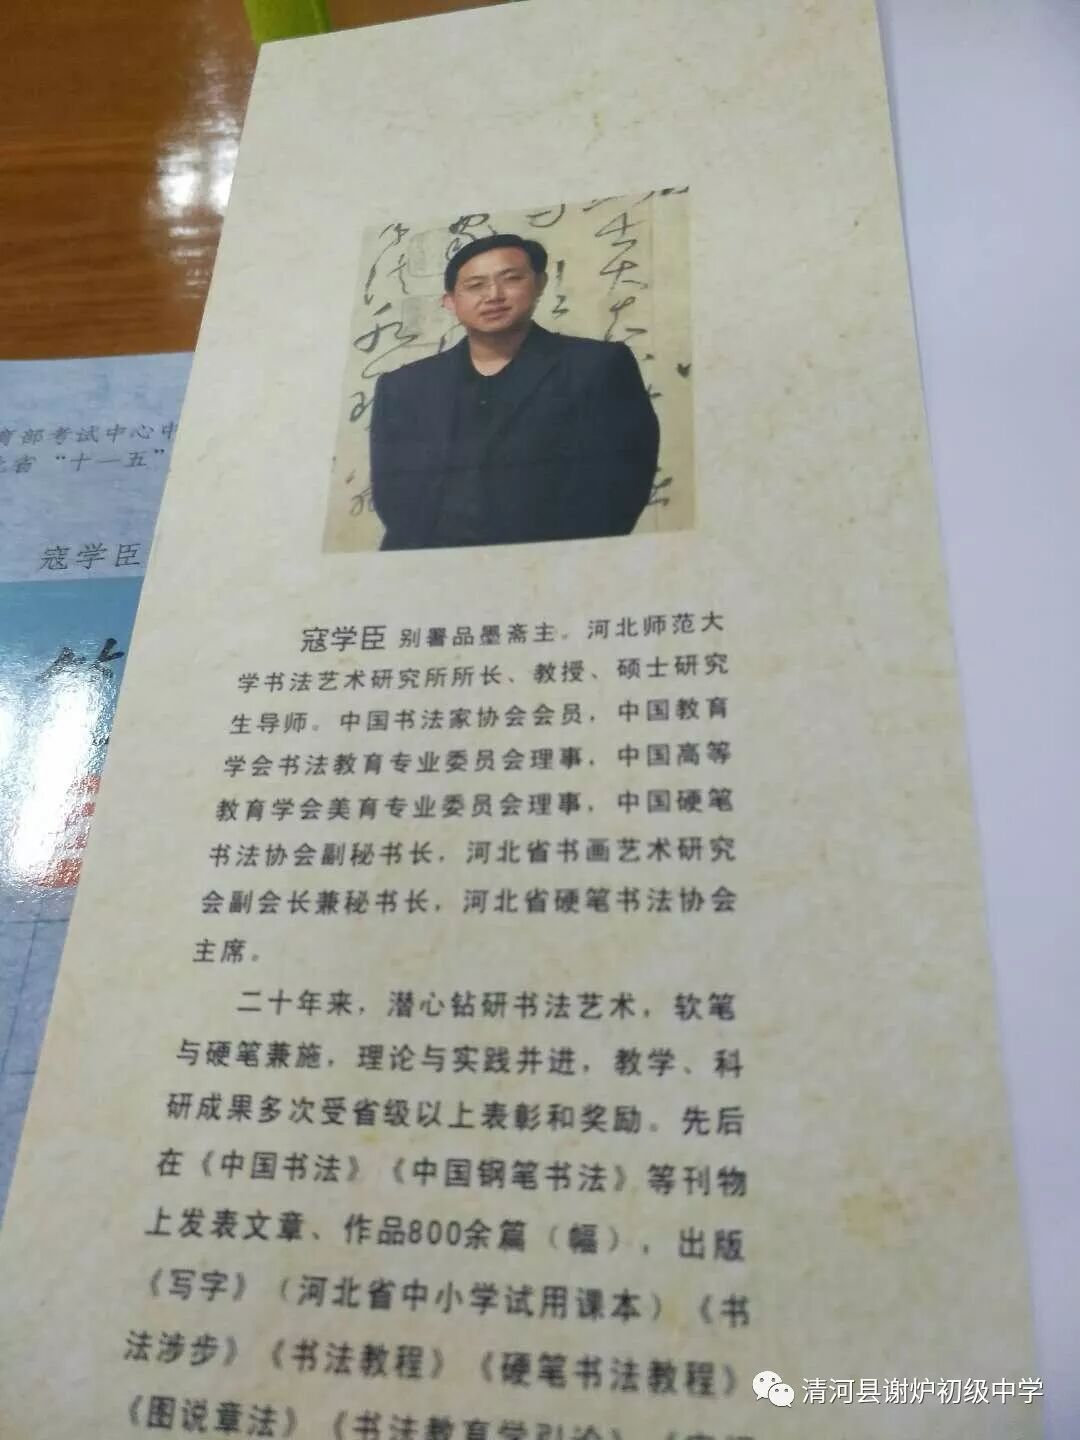 育部考试中心中
北省“十一五”
寇学臣
寇学臣 别署品墨斋主。河北师范大
学书法艺术研究所所长、教授、硕士研究
生导师。中国书法家协会会员，中国教育
学会书法教育专业委员会理事，中国高等
教育学会美育专业委员会理事，中国硬笔
书法协会副秘书长，河北省书画艺术研究
会副会长兼秘书长，河北省硬笔书法协会
主席。
二十年来，潜心钻研书法艺术，软笔
与硬笔兼施，理论与实践并进，教学、科
研成果多次受省级以上表彰和奖励。先后
在《中国书法》《中国钢笔书法》等刊物
上发表文章、作品800余篇（幅），出版
《写字》（河北省中小学试用课本）《书
法涉步》《书法教程》《硬笔书法教程》
《图说章法》《书法教育学引论》
清河县谢炉初级中学